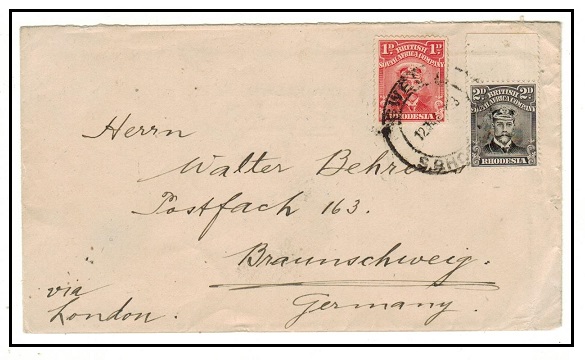 1D. BRITISH 1D.
SOUTH AFRICA COMPANY
RHODESIA
2D. BRITISH 2D.
SOUTH AFRICA COMPANY
RHODESIA
Herrn
Walter Behrens
Postfach 163.
Braunschweig.
Germany.
via
London.